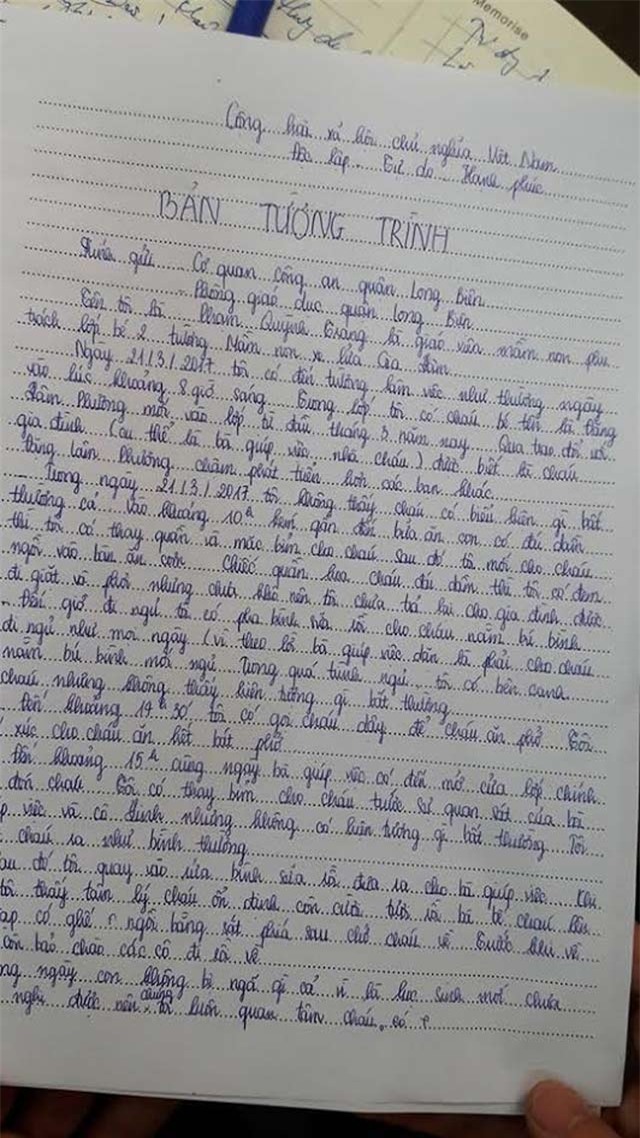 Memorise
Cộng hoà xã hội chủ nghĩa Việt Nam
Độc lập - Tự do - Hạnh phúc
BẢN TƯỜNG TRÌNH
Kính gửi Cơ quan công an quận Long Biên
Phòng giáo dục quận Long Biên
Tên tôi là Phạm Quỳnh Trang là giáo viên mầm non phụ
trách lớp bé 2 trường Mầm non xe lửa Gia Lâm
Ngày 21/3/2017 tôi có đến trường làm việc như thường ngày
vào lúc khoảng 8 giờ sáng Trong lớp tôi có cháu bé tên là Đặng
Lâm Phương mới vào lớp từ đầu tháng 3 năm nay. Qua trao đổi với
gia đình (cụ thể là bà giúp việc nhà cháu) được biết là cháu
Đặng Lâm Phương chậm phát triển hơn các bạn khác
Trong ngày 21/3/2017 tôi không thấy cháu có biểu hiện gì bất
thường cả Vào khoảng 10h hơn gần đến bữa ăn con có đái dầm
thì tôi có thay quần và mặc bỉm cho cháu sau đó tôi mời cho cháu
ngồi vào bàn ăn cơm Chiếc quần hoa cháu đái dầm thì tôi có đem
đi giặt và phơi nhưng chưa khô nên tôi chưa trả lại cho gia đình được
Đến giờ đi ngủ tôi có pha bình sữa rồi cho cháu nằm bú bình
đi ngủ như mọi ngày (vì theo lời bà giúp việc dặn là phải cho cháu
nằm bú bình mới ngủ Trong quá trình ngủ tôi có bên cạnh
cháu nhưng không thấy hiện tượng gì bất thường
Đến khoảng 14h30' tôi có gọi cháu dậy để cháu ăn phở Tôi
xúc cho cháu ăn hết bát phở
Đến khoảng 15h cùng ngày bà giúp việc có đến mở cửa lớp chính
đón cháu Tôi có thay bỉm cho cháu trước sự quan sát của bà
việc và cô Hạnh nhưng không có hiện tượng gì bất thường Tôi
cháu ra như bình thường
đó tôi quay vào rửa bình sữa rồi đưa ra cho bà giúp việc Khi
tôi thấy tâm lý cháu ổn định còn cười tươi rồi bà bế cháu lên
đạp có ghế ngồi bằng sắt phía sau chở cháu về Trước khi về
còn bảo chào các cô đi rồi về
ngày con không bị ngã gì cả vì là học sinh mới chưa
nghi được nên chúng tôi luôn quan tâm cháu, có